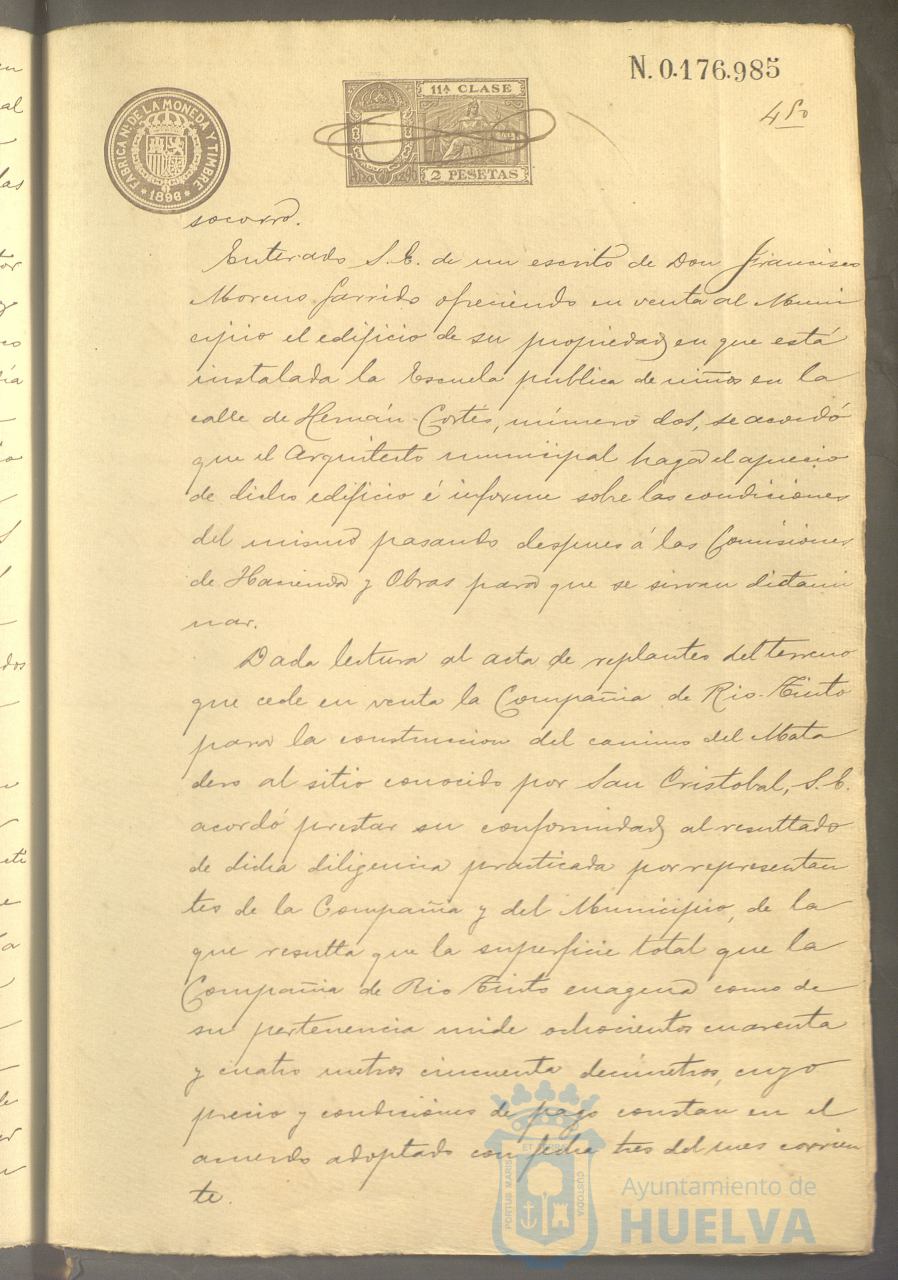 N. 0.176.985
11ª CLASE
FABRICA Nº DE LA MONEDA Y TIMBRE
* 1896 *
2 PESETAS
socorro.
Enterado S. E. de un escrito de Don Francisco
Moreno Garrido ofreciendo en venta al Muni
cipio el edificio de su propiedad en que está
instalada la Escuela publica de niños en la
calle de Hernán-Cortés, número dos, se acordó
que el Arquitecto municipal haga el aprecio
de dicho edificio é informe sobre las condiciones
del mismo pasando despues á las Comisiones
de Hacienda y Obras para que se sirvan dictami
nar.
Dada lectura al acta de replanteo del terreno
que cede en venta la Compañia de Rio-Tinto
para la construccion del camino del Mata
dero al sitio conocido por San Cristobal, S. E.
acordó prestar su conformidad al resultado
de dicha diligencia practicada por representan
tes de la Compañia y del Municipio, de la
que resulta que la superficie total que la
Compañia de Rio Tinto enagena como de
su pertenencia mide ochocientos cuarenta
y cuatro metros cincuenta decimetros, cuyo
precio y condiciones de pago constan en el
acuerdo adoptado con fecha tres del mes corrien
te.
PORTUS MARIS
ET TERRAE
CUSTODIA
Ayuntamiento de
HUELVA